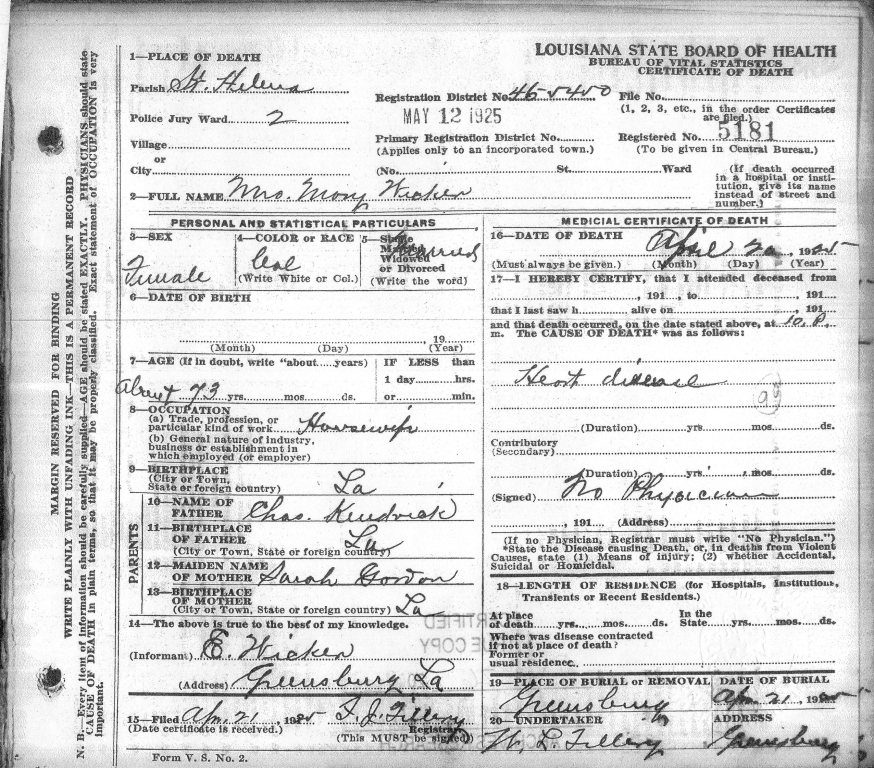 LOUISIANA STATE BOARD OF HEALTH
BUREAU OF VITAL STATISTICS
CERTIFICATE OF DEATH
1—PLACE OF DEATH
Parish St. Helena
Registration District No. 46-5450 File No.
Police Jury Ward 2
MAY 12 1925
(1, 2, 3, etc., in the order Certificates are filed.)
Village
Primary Registration District No. Registered No. 5181
or
(Applies only to an incorporated town.) (To be given in Central Bureau.)
City
(No. St. Ward
(If death occurred in a hospital or institution, give its name instead of street and number.)
2—FULL NAME Mrs. Mary Wicker
PERSONAL AND STATISTICAL PARTICULARS
3—SEX
Female
4—COLOR or RACE
Col
(Write White or Col.)
5—Single
Married
Widowed
or Divorced
(Write the word)
Married
6—DATE OF BIRTH
19
(Month) (Day) (Year)
7—AGE (If in doubt, write "about....years)
About 73 yrs. mos. ds.
IF LESS than
1 day hrs.
or min.
8—OCCUPATION
(a) Trade, profession, or
particular kind of work Housewife
(b) General nature of industry,
business or establishment in
which employed (or employer)
9—BIRTHPLACE
(City or Town,
State or foreign country) La
PARENTS
10—NAME OF
FATHER Chas. Kendrick
11—BIRTHPLACE
OF FATHER La
(City or Town, State or foreign country)
12—MAIDEN NAME
OF MOTHER Sarah Gordon
13—BIRTHPLACE
OF MOTHER
(City or Town, State or foreign country) La
14—The above is true to the best of my knowledge.
(Informant) E. Wicker
(Address) Greensburg La
15—Filed Apr. 21, 1925 T. J. Tillery
(Date certificate is received.) Registrar
(This MUST be signed)
Form V. S. No. 2.
MEDICAL CERTIFICATE OF DEATH
16—DATE OF DEATH
April 20, 1925
(Must always be given.) (Month) (Day) (Year)
17—I HEREBY CERTIFY, that I attended deceased from
, 191 , to , 191
that I last saw h alive on , 191
and that death occurred, on the date stated above, at 10. P.
m. The CAUSE OF DEATH* was as follows:
Heart disease
(Duration) yrs. mos. ds.
Contributory
(Secondary)
(Duration) yrs. mos. ds.
(Signed) No Physician
, 191 (Address)
(If no Physician, Registrar must write "No Physician.")
*State the Disease causing Death, or, in deaths from Violent
Causes, state (1) Means of injury; (2) whether Accidental,
Suicidal or Homicidal.
18—LENGTH OF RESIDENCE (for Hospitals, Institutions,
Transients or Recent Residents.)
At place
of death yrs. mos. ds.
In the
State yrs. mos. ds.
Where was disease contracted
if not at place of death?
Former or
usual residence
19—PLACE OF BURIAL or REMOVAL
Greensburg
DATE OF BURIAL
Apr. 21, 1925
20—UNDERTAKER
W. L. Tillery
ADDRESS
Greensburg
MARGIN RESERVED FOR BINDING
WRITE PLAINLY WITH UNFADING INK—THIS IS A PERMANENT RECORD
N. B.—Every item of information should be carefully supplied—AGE should be stated EXACTLY. PHYSICIANS should state
CAUSE OF DEATH in plain terms, so that it may be properly classified. Exact statement of OCCUPATION is very
important.